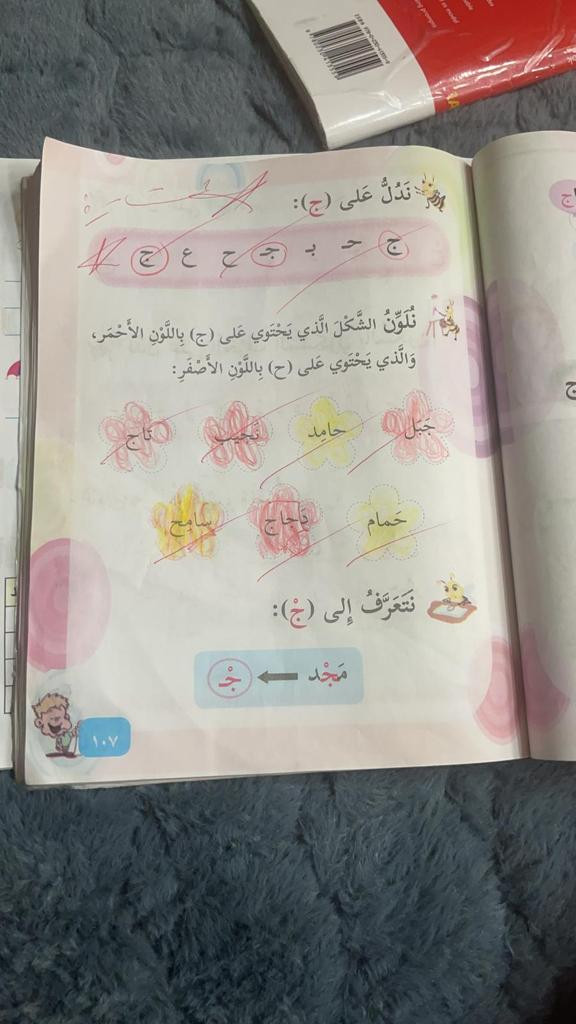 نَدُلُّ عَلى (ج):
ج حـ بـ جـ ح ع ج
نُلَوِّنُ الشَّكْلَ الَّذي يَحْتَوي عَلى (ج) بِاللَّوْنِ الأَحْمَرِ،
وَالَّذي يَحْتَوي عَلى (ح) بِاللَّوْنِ الأَصْفَرِ:
جَبَل حامِد نَجيب تاج
حَمام دَجاج سامِح
نَتَعَرَّفُ إِلى (جْ):
مَجْد جْـ
١٠٧